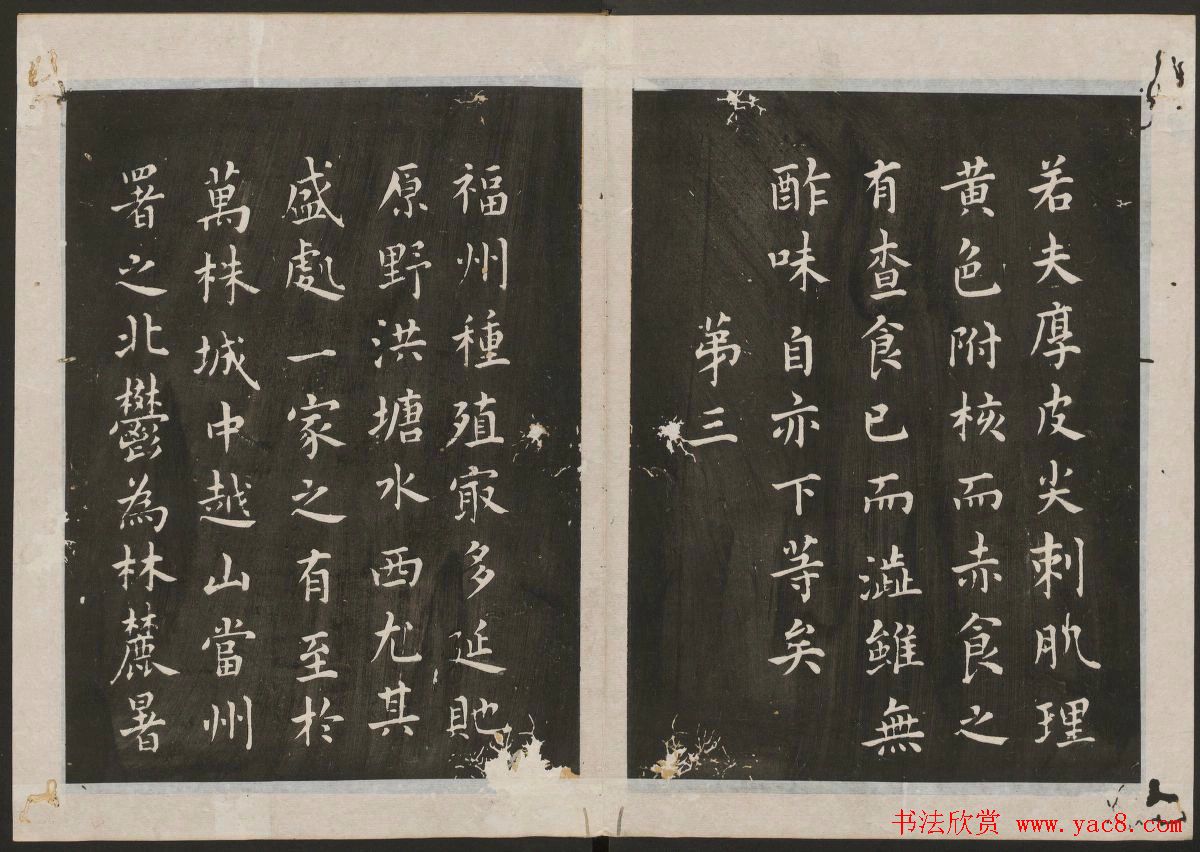 若夫厚皮尖刺肌理
黄色附核而赤食之
有査食已而澁雖無
酢味自亦下等矣
苐三
福州種殖㝡多延貤
原野洪塘水西尤其
盛處一家之有至於
萬株城中越山當州
署之北鬱為林麓暑
书法欣赏 www.yac8.com